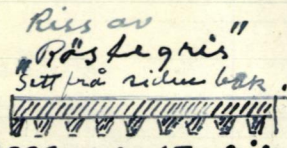 Riss av
"Røstegris"
Sett frå siden bak.